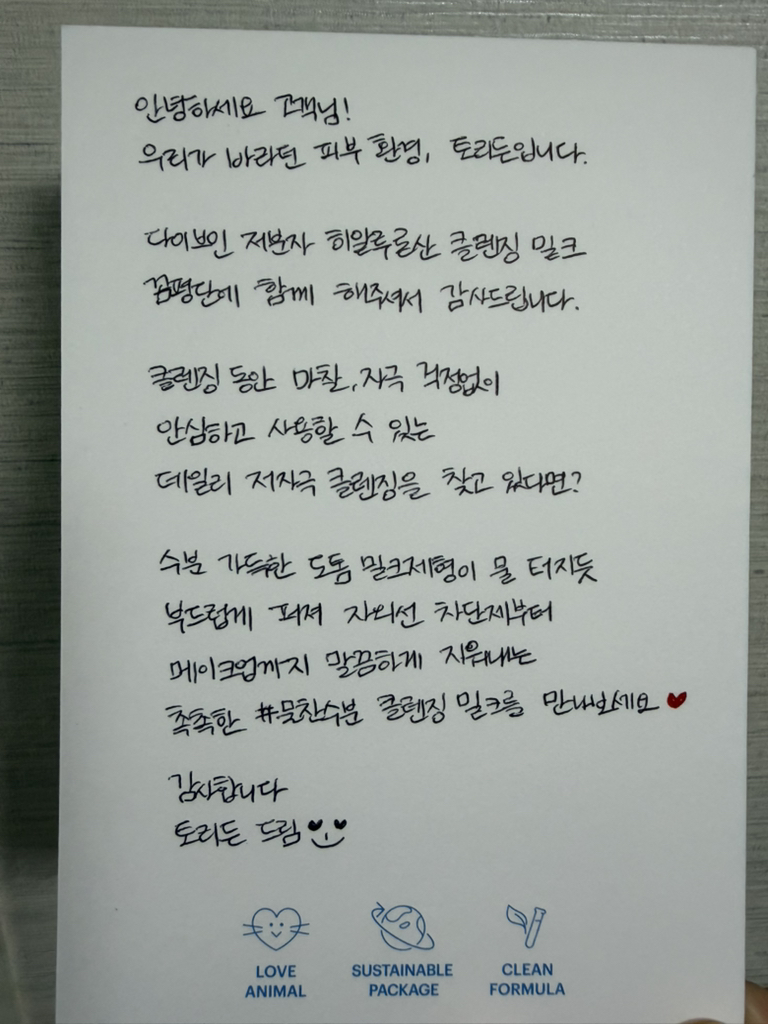 안녕하세요 고객님!
우리가 바라던 피부 환경, 토리든입니다.
다이브인 저분자 히알루론산 클렌징 밀크
꼼평단에 함께 해주셔서 감사드립니다.
클렌징 동안 마찰, 자극 걱정없이
안심하고 사용할 수 있는
데일리 저자극 클렌징을 찾고 있다면?
수분 가득한 도톰 밀크제형이 물 터지듯
부드럽게 퍼져 자외선 차단제부터
메이크업까지 말끔하게 지워내는
촉촉한 #뭊찬수분 클렌징 밀크를 만나보세요
감사합니다
토리든 드림
LOVE ANIMAL
SUSTAINABLE PACKAGE
CLEAN FORMULA